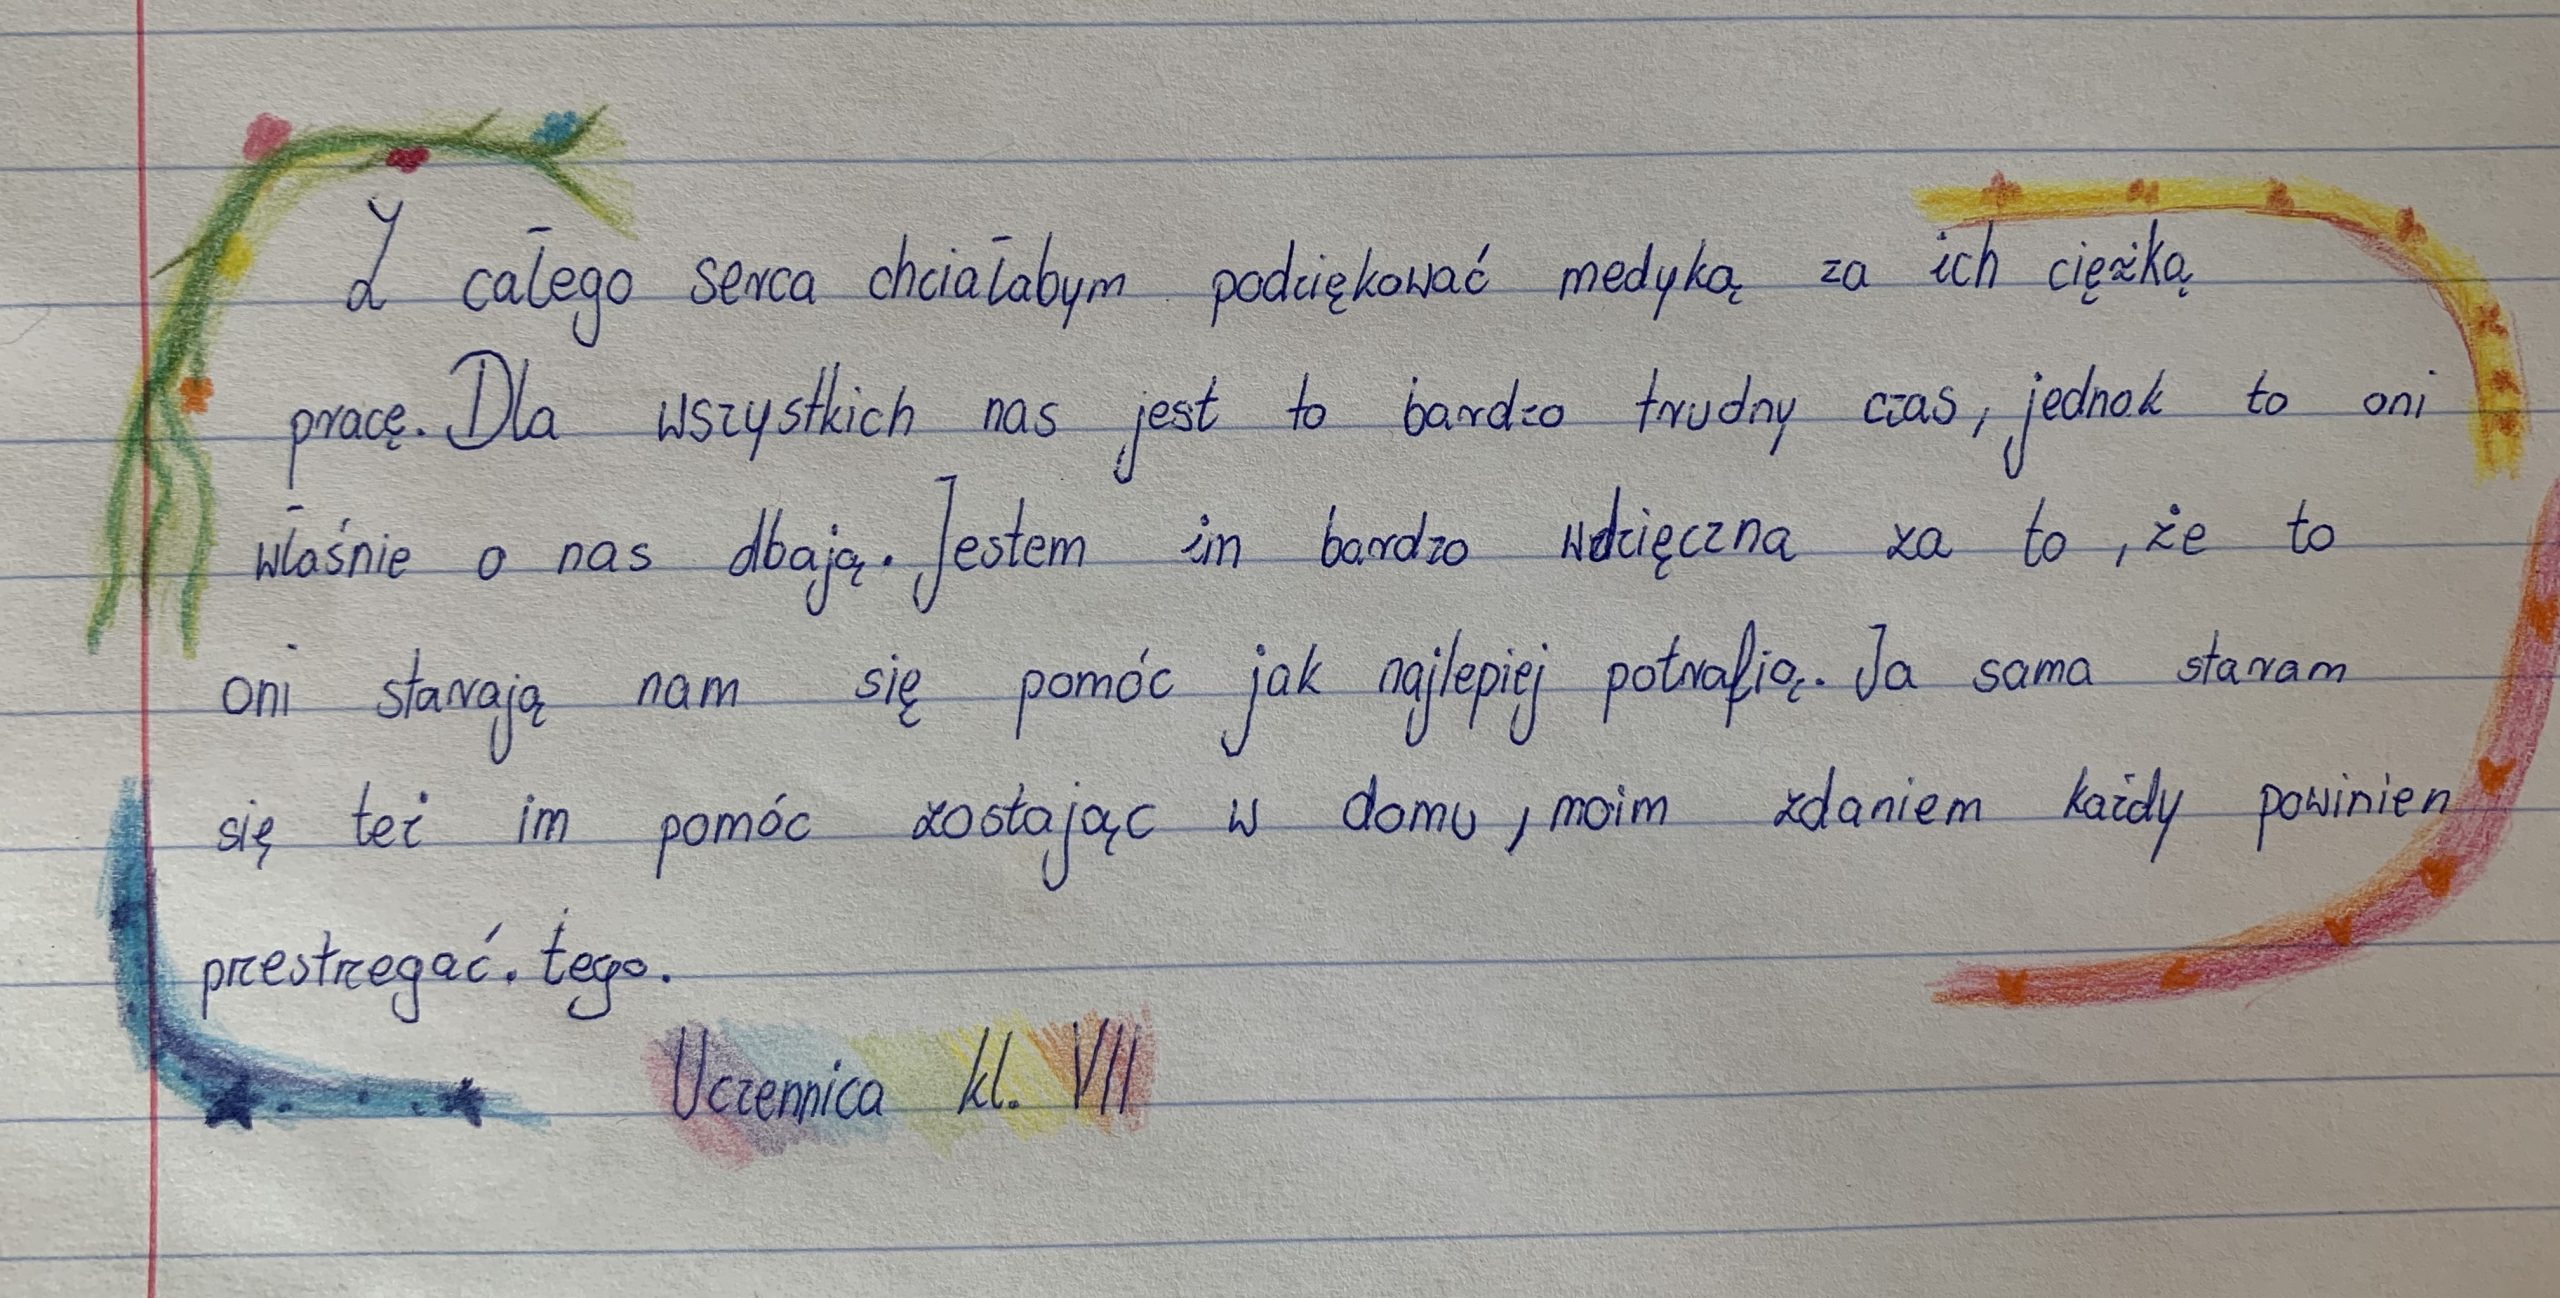 Z całego serca chciałabym podziękować medyką za ich ciężką
pracę. Dla wszystkich nas jest to bardzo trudny czas, jednak to oni
właśnie o nas dbają. Jestem im bardzo wdzięczna za to, że to
oni starają nam się pomóc jak najlepiej potrafią. Ja sama staram
się też im pomóc zostając w domu, moim zdaniem każdy powinien
przestrzegać. tego.
Uczennica kl. VII